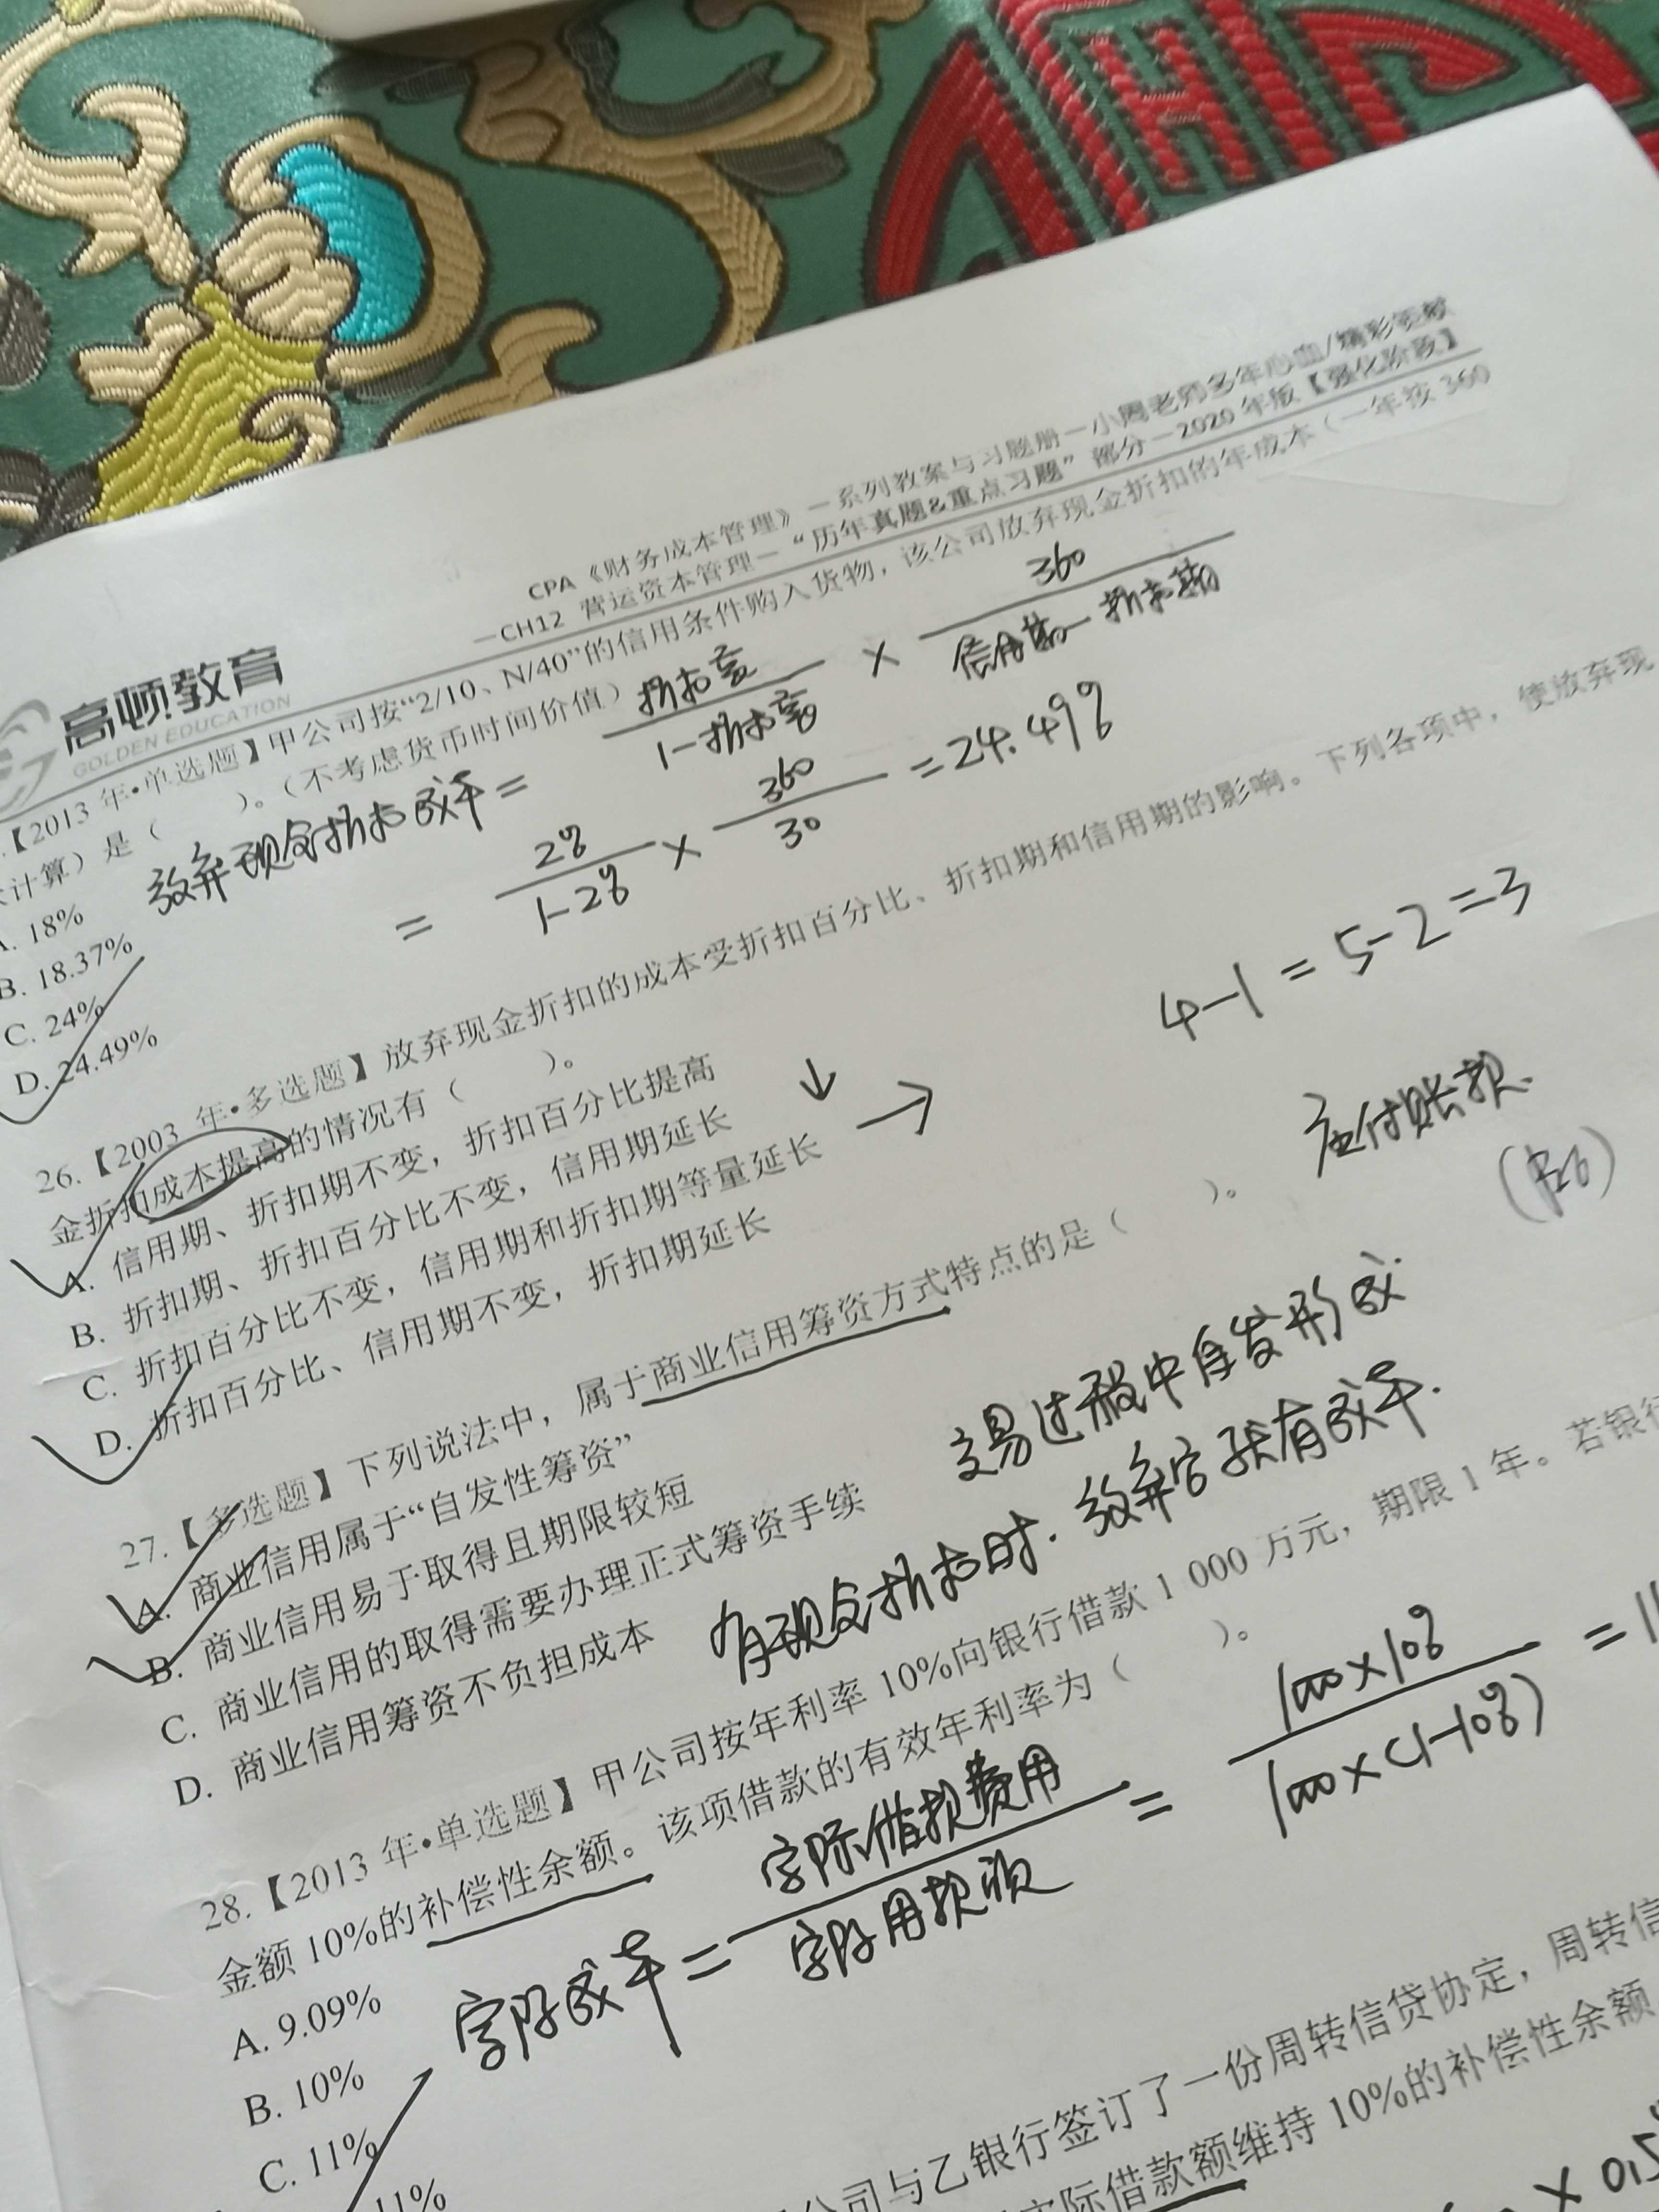 高顿教育
GOLDEN EDUCATION
CPA《财务成本管理》—系列教案与习题册—小周老师多年心血/精彩
—CH12 营运资本管理—“历年真题&重点习题”部分—2020年版【强化阶段】
.【2013 年•单选题】甲公司按“2/10、N/40”的信用条件购入货物，该公司放弃现金折扣的年成本（一年按 360
计算）是（ ）。（不考虑货币时间价值）
放弃现金折扣成本 = 折扣率 / 1-折扣率 × 360 / 信用期-折扣期
= 2% / 1-2% × 360 / 30 = 24.49%
A. 18%
B. 18.37%
C. 24%
D. 24.49%
26.【2003 年•多选题】放弃现金折扣的成本受折扣百分比、折扣期和信用期的影响。下列各项中，使放弃现
金折扣成本提高的情况有（ ）。
A. 信用期、折扣期不变，折扣百分比提高
B. 折扣期、折扣百分比不变，信用期延长 ↓
C. 折扣百分比不变，信用期和折扣期等量延长 →
4-1=5-2=3
D. 折扣百分比、信用期不变，折扣期延长
27.【多选题】下列说法中，属于商业信用筹资方式特点的是（ ）。
应付账款.
A. 商业信用属于“自发性筹资”
B. 商业信用易于取得且期限较短
交易过程中自发形成.
C. 商业信用的取得需要办理正式筹资手续
D. 商业信用筹资不负担成本
有现金折扣时. 放弃它就有成本.
28.【2013 年•单选题】甲公司按年利率 10%向银行借款 1 000 万元，期限 1 年。若银行
金额 10%的补偿性余额。该项借款的有效年利率为（ ）。
实际成本 = 实际借款费用 / 实际用款额 = 1000×10% / 1000×(1-10%) = 11
A. 9.09%
B. 10%
C. 11%
11%
公司与乙银行签订了一份周转信贷协定，周转信
实际借款额维持 10%的补偿性余额